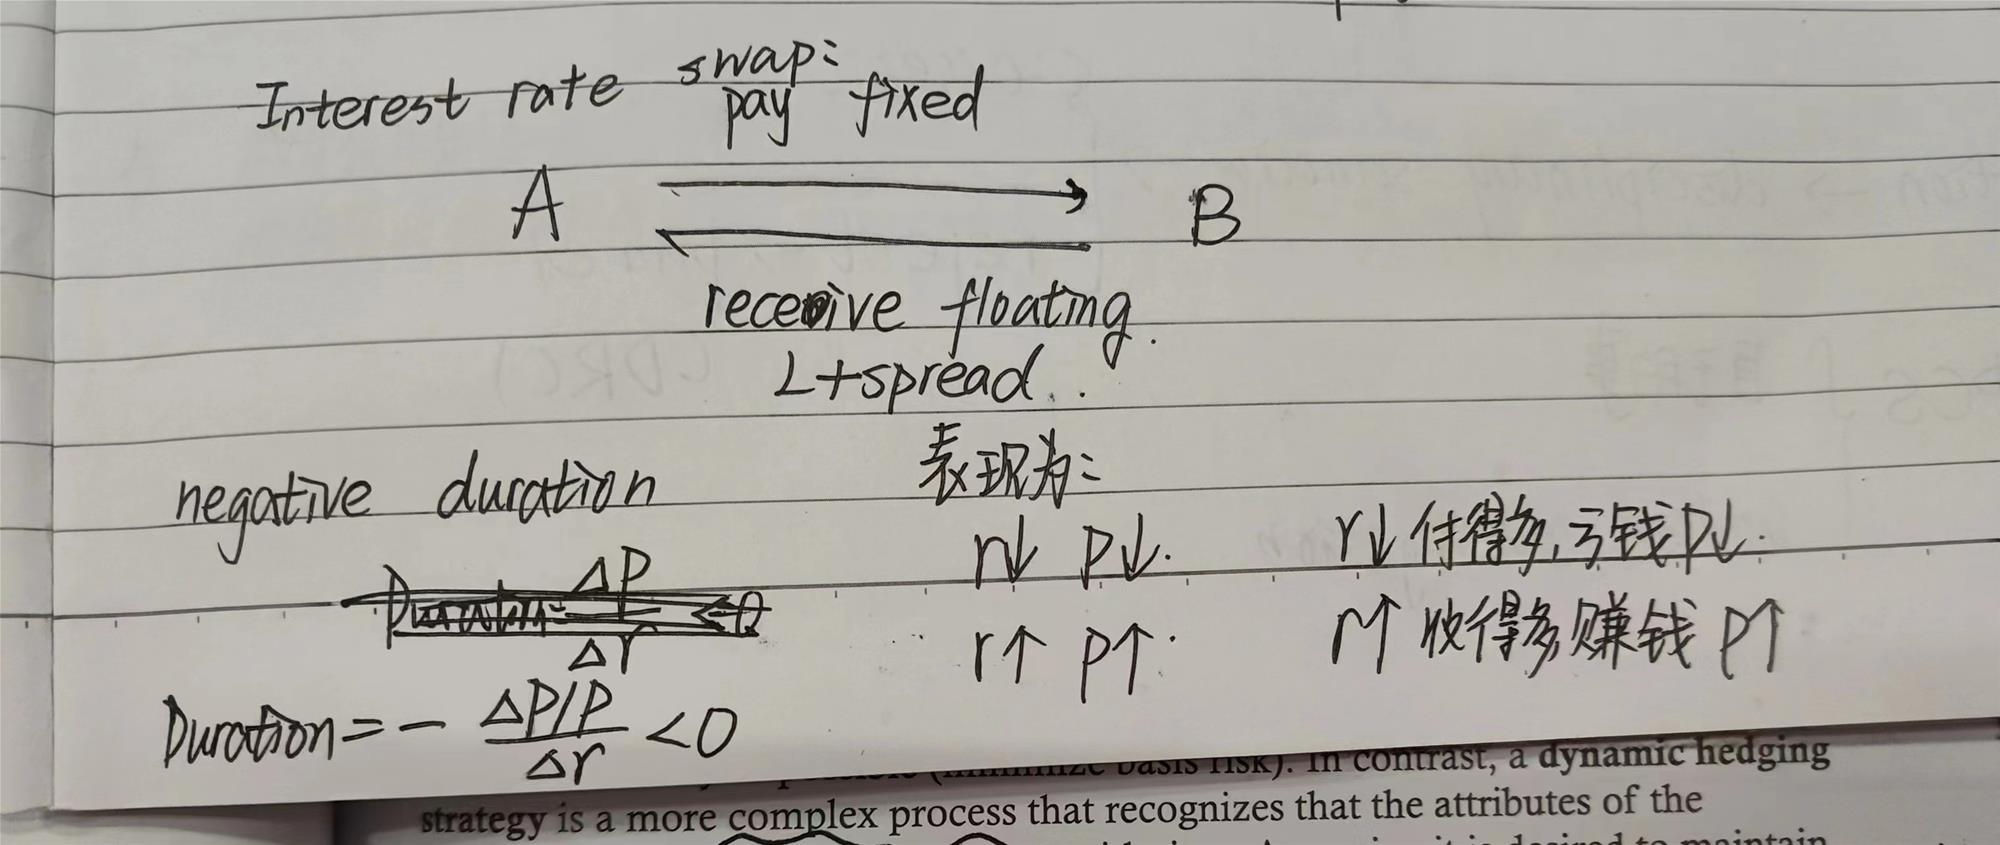 Interest rate swap:
pay fixed
A B
receive floating.
L+spread.
negative duration
表现为:
r↓ P↓. r↓付得多,亏钱P↓.
ΔP
Duration= <0
Δr
r↑ P↑. r↑收得多赚钱P↑
Duration=- ΔP/P / Δr <0
(minimize basis risk). In contrast, a dynamic hedging
strategy is a more complex process that recognizes that the attributes of the